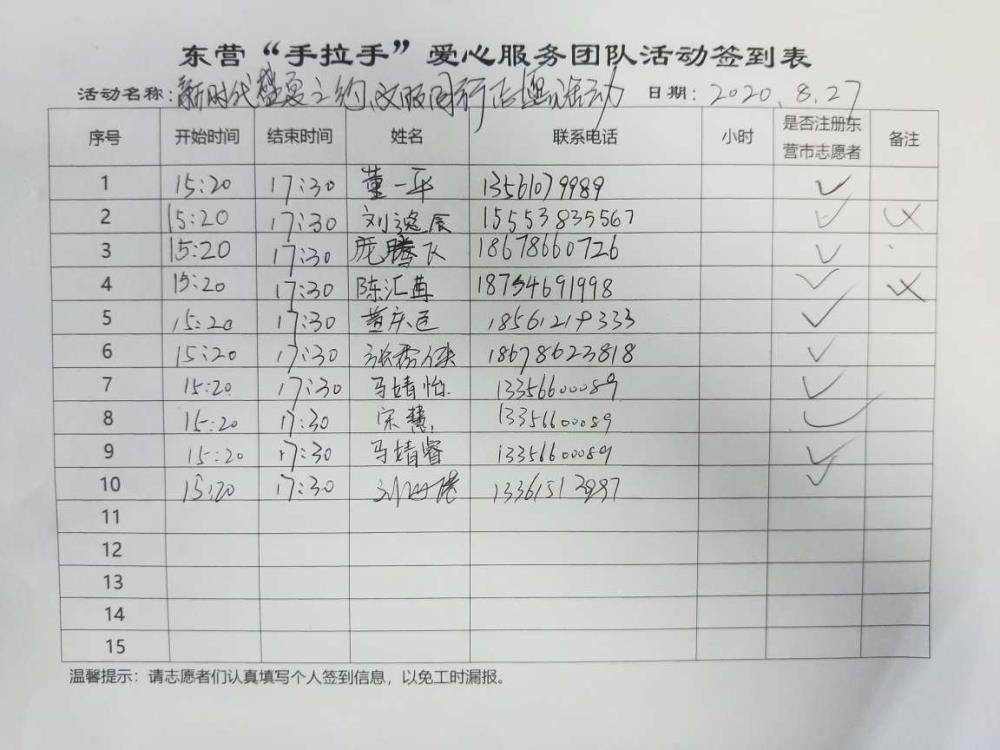 东营“手拉手”爱心服务团队活动签到表
活动名称:新时代盛夏之约,文明同行志愿活动 日期: 2020.8.27
序号 开始时间 结束时间 姓名 联系电话 小时 是否注册东营市志愿者 备注
1 15:20 17:30 董一平 13561079989 ✓
2 15:20 17:30 刘逸辰 15553835567 ✓
3 15:20 17:30 庞腾飞 18678660726 ✓
4 15:20 17:30 陈汇苒 18754691998 ✓
5 15:20 17:30 董庆 ✓
6 15:20 17:30 张秀 18678623818 ✓
7 15:20 17:30 马婧怡 13356600089 ✓
8 15:20 17:30 宋慧 13356600089 ✓
9 15:20 17:30 马婧睿 13356600089 ✓
10 15:20 17:30 刘 ✓
11
12
13
14
15
温馨提示：请志愿者们认真填写个人签到信息，以免工时漏报。